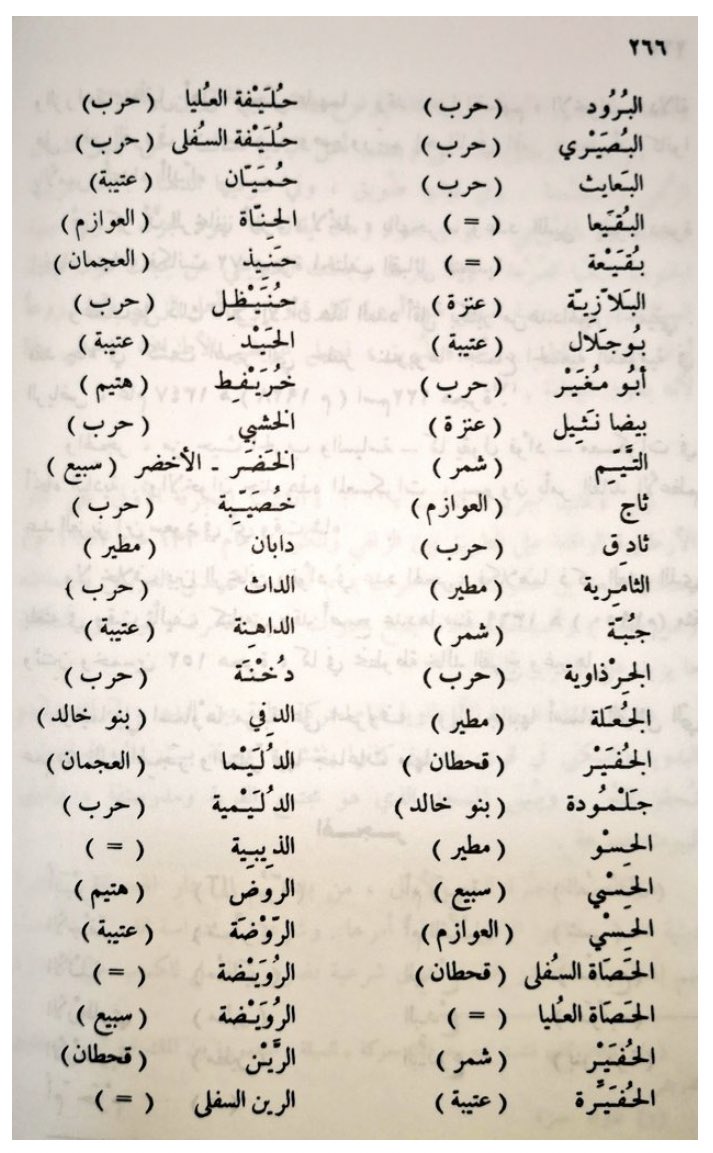 ٢٦٦
البُرُود ( حرب )
البُصَيْري ( حرب )
البَعايث ( حرب )
البُقَيعا ( = )
بُقَيْعة ( = )
البَلازيّة ( عنزة )
بُوجلال ( عتيبة )
أبُو مُغَيْر ( حرب )
بيضا نَثِيل ( عنزة )
التَّيِّم ( شمر )
ثاج ( العوازم )
ثادِق ( حرب )
الثامِرية ( مطير )
جُبّة ( شمر )
الجِرْذاوية ( حرب )
الجُعْلة ( مطير )
الجُفَيْر ( قحطان )
جَلْمُودة ( بنو خالد )
الحِسْو ( مطير )
الحِسْي ( سبيع )
الحِسْي ( العوازم )
الحَصَاة السُفلى ( قحطان )
الحَصَاة العُليا ( = )
الحُفَيْر ( شمر )
الحُفَيَّرة ( عتيبة )
حُلَيْفة العُليا ( حرب )
حُلَيْفة السُفلى ( حرب )
حُمَيّان ( عتيبة )
الحِنّاة ( العوازم )
حَنِيذ ( العجمان )
حُنَيْظِل ( حرب )
الحَيْد ( عتيبة )
خُرَيْفِط ( هتيم )
الخشيبي ( حرب )
الخَضَر - الأخضر ( سبيع )
خُصَيْبة ( حرب )
دابان ( مطير )
الداث ( حرب )
الداهِنة ( عتيبة )
دُخْنَة ( حرب )
الدفِي ( بنو خالد )
الدُلَيْما ( العجمان )
الدُلَيْمية ( حرب )
الذيبية ( = )
الروض ( هتيم )
الرّوْضَة ( عتيبة )
الرُوَيْضة ( = )
الرُوَيْضة ( سبيع )
الرَّيْن ( قحطان )
الرين السفلى ( = )